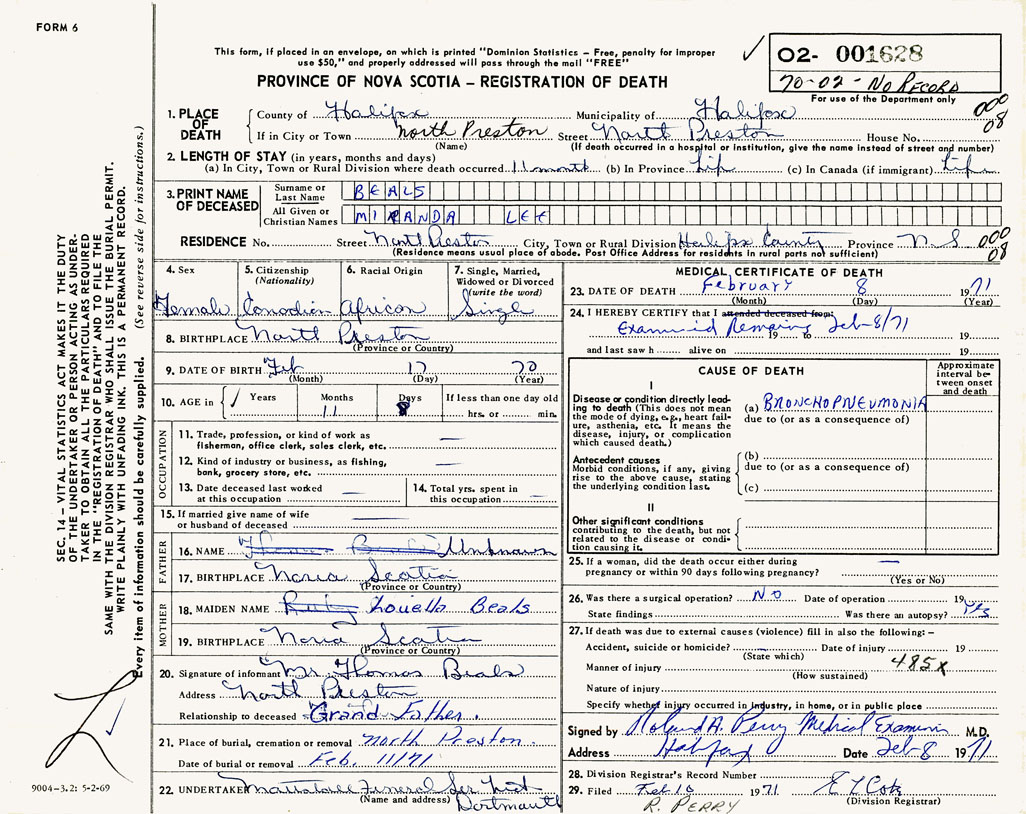 FORM 6
This form, if placed in an envelope, on which is printed "Dominion Statistics – Free, penalty for improper
use $50," and properly addressed will pass through the mail "FREE"
PROVINCE OF NOVA SCOTIA – REGISTRATION OF DEATH
02- 001628
70-02 - NO RECORD
For use of the Department only
000
08
1. PLACE OF DEATH
County of Halifax Municipality of Halifax
If in City or Town North Preston Street North Preston House No.
(Name) (If death occurred in a hospital or institution, give the name instead of street and number)
2. LENGTH OF STAY (in years, months and days)
(a) In City, Town or Rural Division where death occurred 11 month (b) In Province Life (c) In Canada (if immigrant) Life
3. PRINT NAME OF DECEASED
Surname or Last Name BEALS
All Given or Christian Names MIRANDA LEE
RESIDENCE No. Street North Preston City, Town or Rural Division Halifax County Province N.S
000
08
(Residence means usual place of abode. Post Office Address for residents in rural parts not sufficient)
4. Sex
Female
5. Citizenship
(Nationality)
Canadian
6. Racial Origin
African
7. Single, Married,
Widowed or Divorced
(write the word)
Single
8. BIRTHPLACE North Preston
(Province or Country)
9. DATE OF BIRTH Feb 17 70
(Month) (Day) (Year)
10. AGE in Years Months Days If less than one day old
11 8 hrs. or min.
OCCUPATION
11. Trade, profession, or kind of work as
fisherman, office clerk, sales clerk, etc. —
12. Kind of industry or business, as fishing,
bank, grocery store, etc. —
13. Date deceased last worked
at this occupation —
14. Total yrs. spent in
this occupation —
15. If married give name of wife
or husband of deceased —
FATHER
16. NAME Unknown
17. BIRTHPLACE Nova Scotia
(Province or Country)
MOTHER
18. MAIDEN NAME Ruby Louella Beals
19. BIRTHPLACE Nova Scotia
(Province or Country)
20. Signature of informant Mr. Thomas Beals
Address North Preston
Relationship to deceased Grand Father.
21. Place of burial, cremation or removal North Preston
Date of burial or removal Feb. 11/71
22. UNDERTAKER Funeral Ser
(Name and address) Dartmouth
MEDICAL CERTIFICATE OF DEATH
23. DATE OF DEATH February 8 1971
(Month) (Day) (Year)
24. I HEREBY CERTIFY that I attended deceased from:
Examined Remains Feb-8/71
19 to 19
and last saw h alive on 19
CAUSE OF DEATH
Approximate
interval be-
tween onset
and death
I
Disease or condition directly lead-
ing to death (This does not mean
the mode of dying, e.g., heart fail-
ure, asthenia, etc. It means the
disease, injury, or complication
which caused death.)
(a) BRONCHOPNEUMONIA
due to (or as a consequence of)
Antecedent causes
Morbid conditions, if any, giving
rise to the above cause, stating
the underlying condition last.
(b)
due to (or as a consequence of)
(c)
II
Other significant conditions
contributing to the death, but not
related to the disease or condi-
tion causing it.
25. If a woman, did the death occur either during
pregnancy or within 90 days following pregnancy? —
(Yes or No)
26. Was there a surgical operation? No Date of operation 19
State findings Was there an autopsy? Yes
27. If death was due to external causes (violence) fill in also the following:–
Accident, suicide or homicide? Date of injury 19
(State which)
Manner of injury 485X
(How sustained)
Nature of injury
Specify whether injury occurred in Industry, in home, or in public place
Signed by Roland A. Perry Medical Examiner M.D.
Address Halifax Date Feb-8 1971
28. Division Registrar's Record Number
29. Filed Feb 10 1971
(Division Registrar)
R. PERRY
SEC. 14 – VITAL STATISTICS ACT MAKES IT THE DUTY
OF THE UNDERTAKER OR PERSON ACTING AS UNDER-
TAKER TO OBTAIN ALL THE PARTICULARS REQUIRED
IN THE "REGISTRATION OF DEATH" AND TO FILE THE
SAME WITH THE DIVISION REGISTRAR WHO SHALL ISSUE THE BURIAL PERMIT.
WRITE PLAINLY WITH UNFADING INK. THIS IS A PERMANENT RECORD.
Every item of information should be carefully supplied. (See reverse side for instructions.)
9004-3.2: 5-2-69